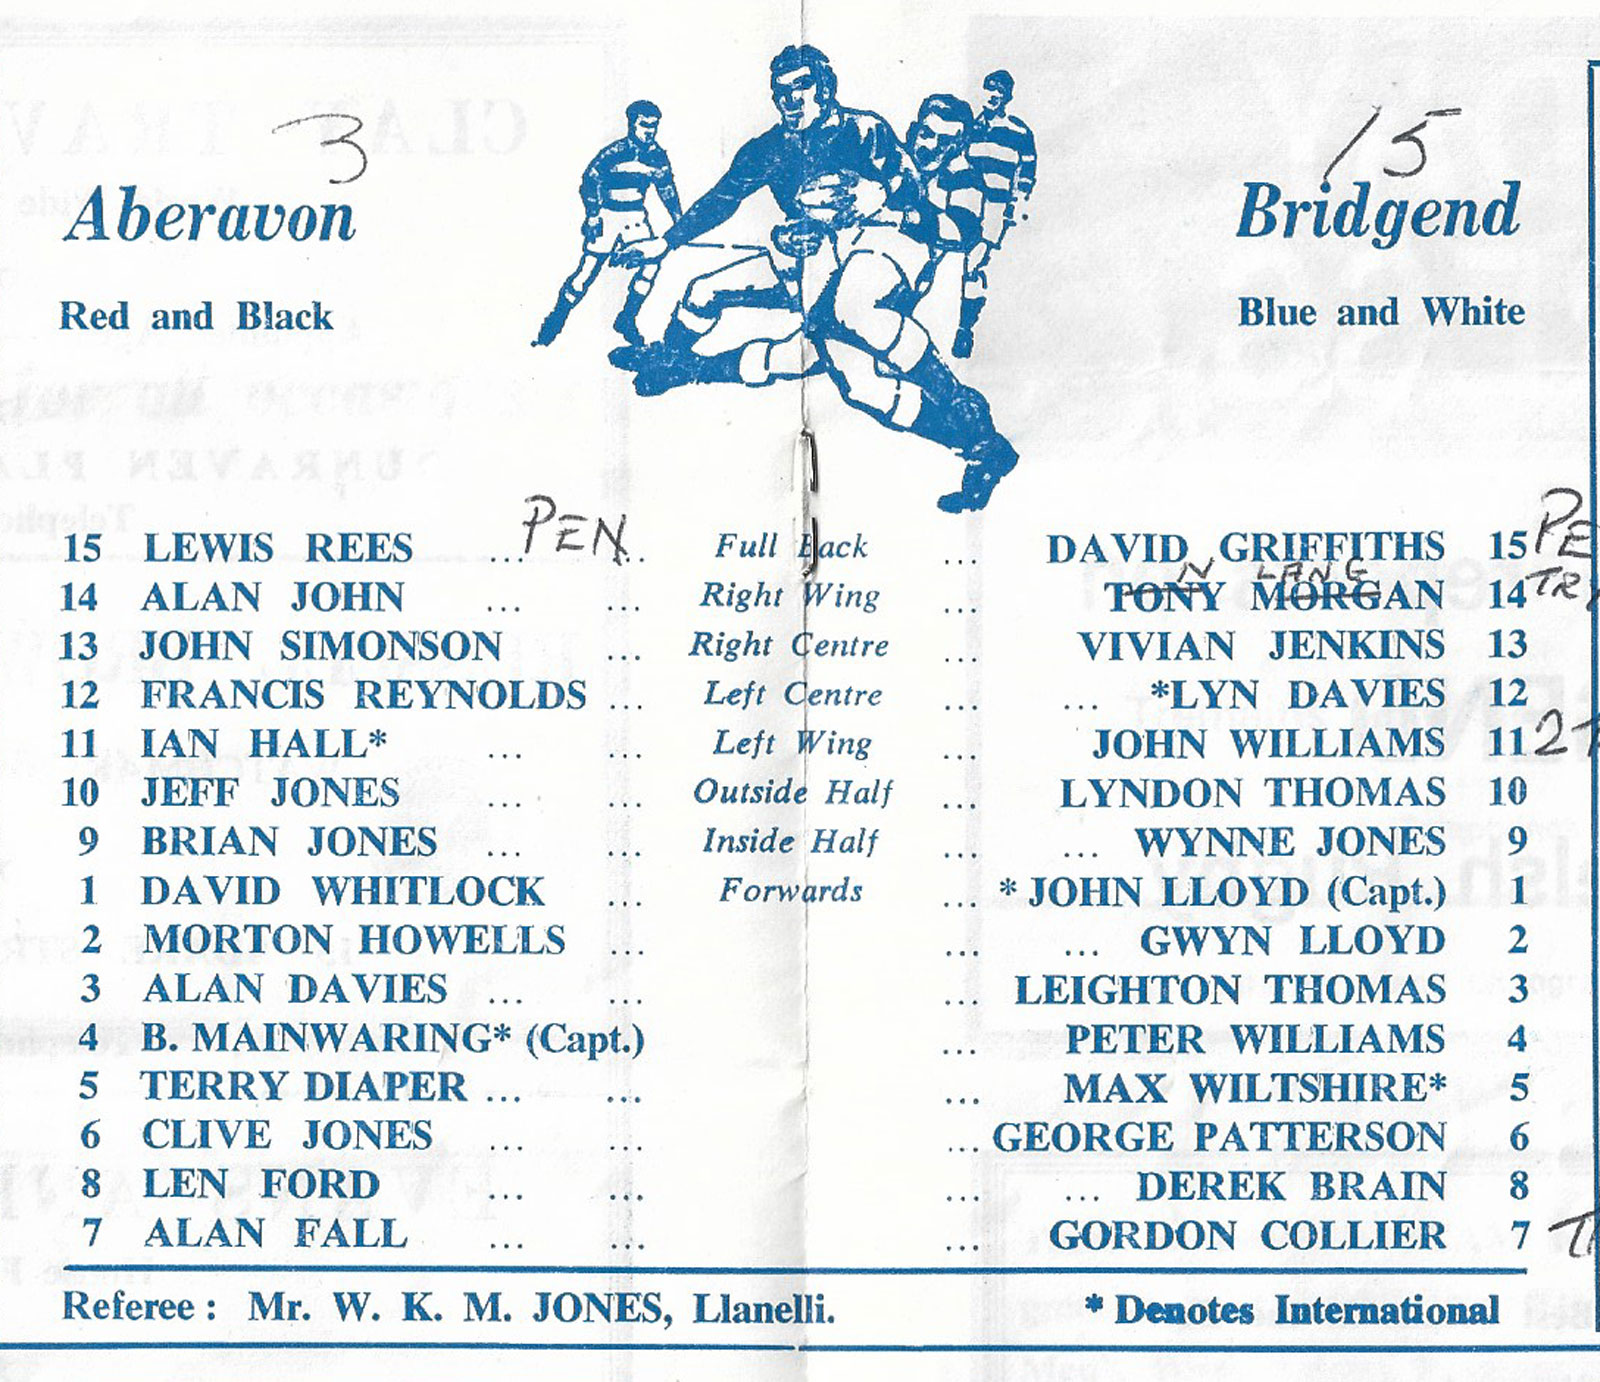 3
15
Aberavon Bridgend
Red and Black Blue and White
PEN
15 LEWIS REES ... ... Full Back ... DAVID GRIFFITHS 15 PE
N LANG
14 ALAN JOHN ... ... Right Wing ... TONY MORGAN 14 TRY
13 JOHN SIMONSON ... Right Centre ... VIVIAN JENKINS 13
12 FRANCIS REYNOLDS ... Left Centre ... ... *LYN DAVIES 12
11 IAN HALL* ... ... Left Wing ... JOHN WILLIAMS 11 2T
10 JEFF JONES ... ... Outside Half ... LYNDON THOMAS 10
9 BRIAN JONES ... ... Inside Half ... ... WYNNE JONES 9
1 DAVID WHITLOCK ... Forwards ... *JOHN LLOYD (Capt.) 1
2 MORTON HOWELLS ... ... ... GWYN LLOYD 2
3 ALAN DAVIES ... ... ... LEIGHTON THOMAS 3
4 B. MAINWARING* (Capt.) ... PETER WILLIAMS 4
5 TERRY DIAPER ... ... ... MAX WILTSHIRE* 5
6 CLIVE JONES ... ... ... GEORGE PATTERSON 6
8 LEN FORD ... ... ... ... DEREK BRAIN 8
7 ALAN FALL ... ... ... GORDON COLLIER 7 T
Referee : Mr. W. K. M. JONES, Llanelli. * Denotes International